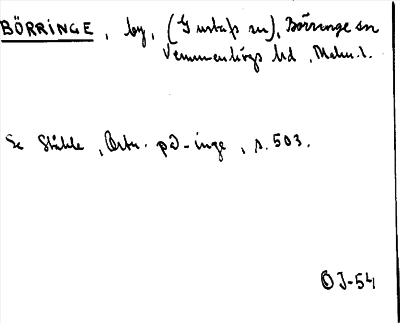 BÖRRINGE, by, (Gustafs sn), Börringe sn
Vemmenhögs hd, Malm. l.
Se Ståhle, Ortn. på -inge, s. 503.
OJ-54